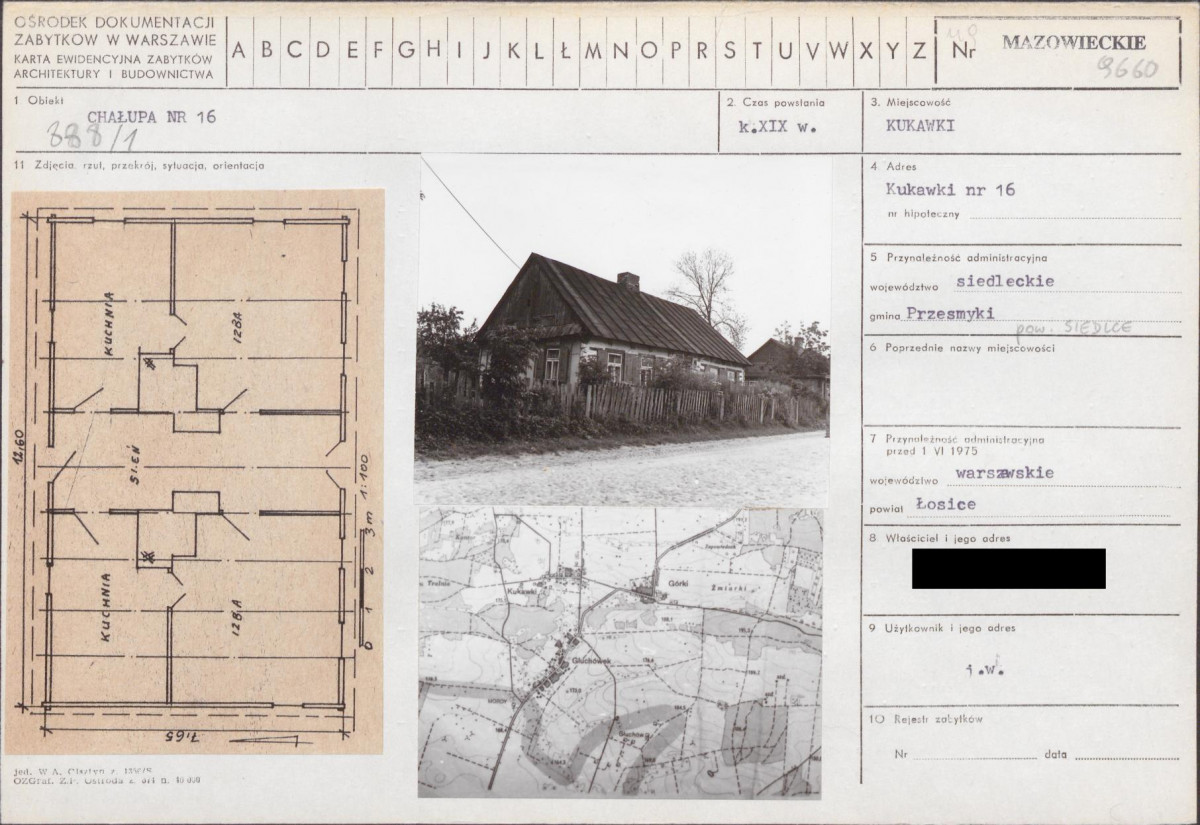 OŚRODEK DOKUMENTACJI
ZABYTKÓW W WARSZAWIE
KARTA EWIDENCYJNA ZABYTKÓW
ARCHITEKTURY I BUDOWNICTWA
A B C D E F G H I J K L Ł M N O P R S T U V W X Y Z
Nr MAZOWIECKIE
9660
1 Obiekt
CHAŁUPA NR 16
388/1
2. Czas powstania
k.XIX w.
3. Miejscowość
KUKAWKI
11 Zdjęcia, rzut, przekrój, sytuacja, orientacja
4 Adres
Kukawki nr 16
nr hipoteczny
5 Przynależność administracyjna
województwo siedleckie
gmina Przesmyki
pow. SIEDLCE
6 Poprzednie nazwy miejscowości
7 Przynależność administracyjna
przed 1 VI 1975
województwo warszawskie
powiat Łosice
8 Właściciel i jego adres
9 Użytkownik i jego adres
j.w.
10 Rejestr zabytków
Nr data
KUCHNIA
IZBA
SIEŃ
KUCHNIA
IZBA
12,60
7,65
0 1 2 3 m 1:100
Kukawki
Górki
Żmiurki
Głuchówek